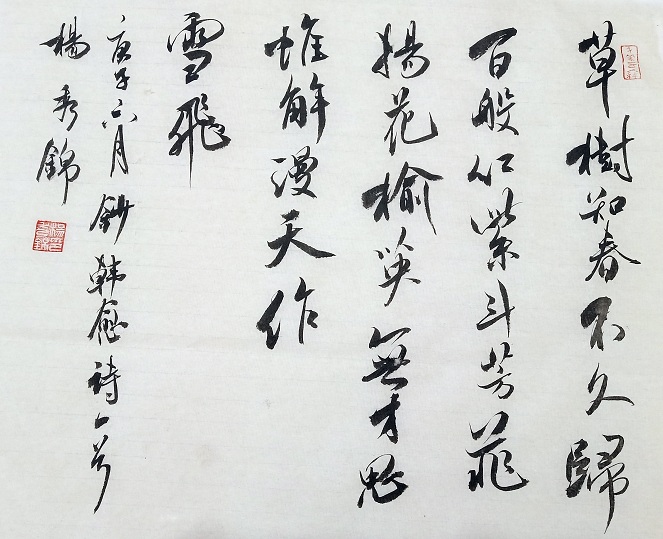 草樹知春不久歸
百般紅紫斗芳菲
揚花榆莢無才思
惟解漫天作
雪飛
庚子六月鈔韩愈詩一首
楊秀錦